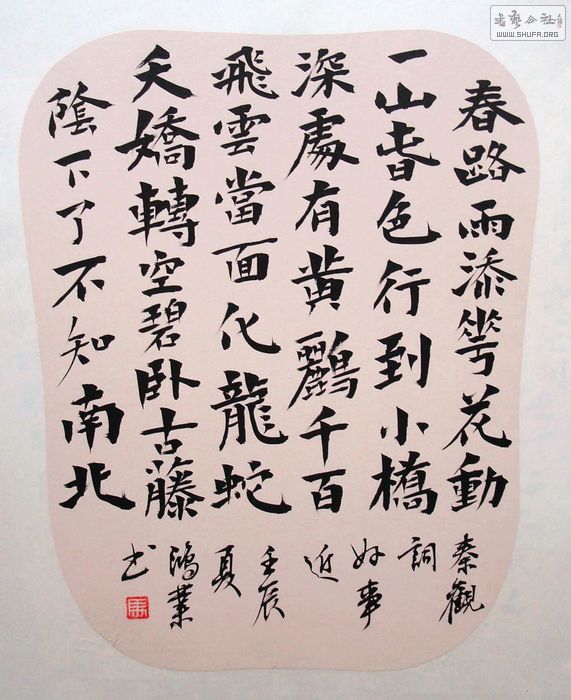 春路雨添𠌶花動
一山旾色行到小橋
深處有黄鸝千百
飛雲當面化龍蛇
夭嬌轉空碧卧古藤
陰下了不知南北
秦觀
詞
好事
近
壬辰
夏
鴻業
书
書藝公社
WWW.SHUFA.ORG